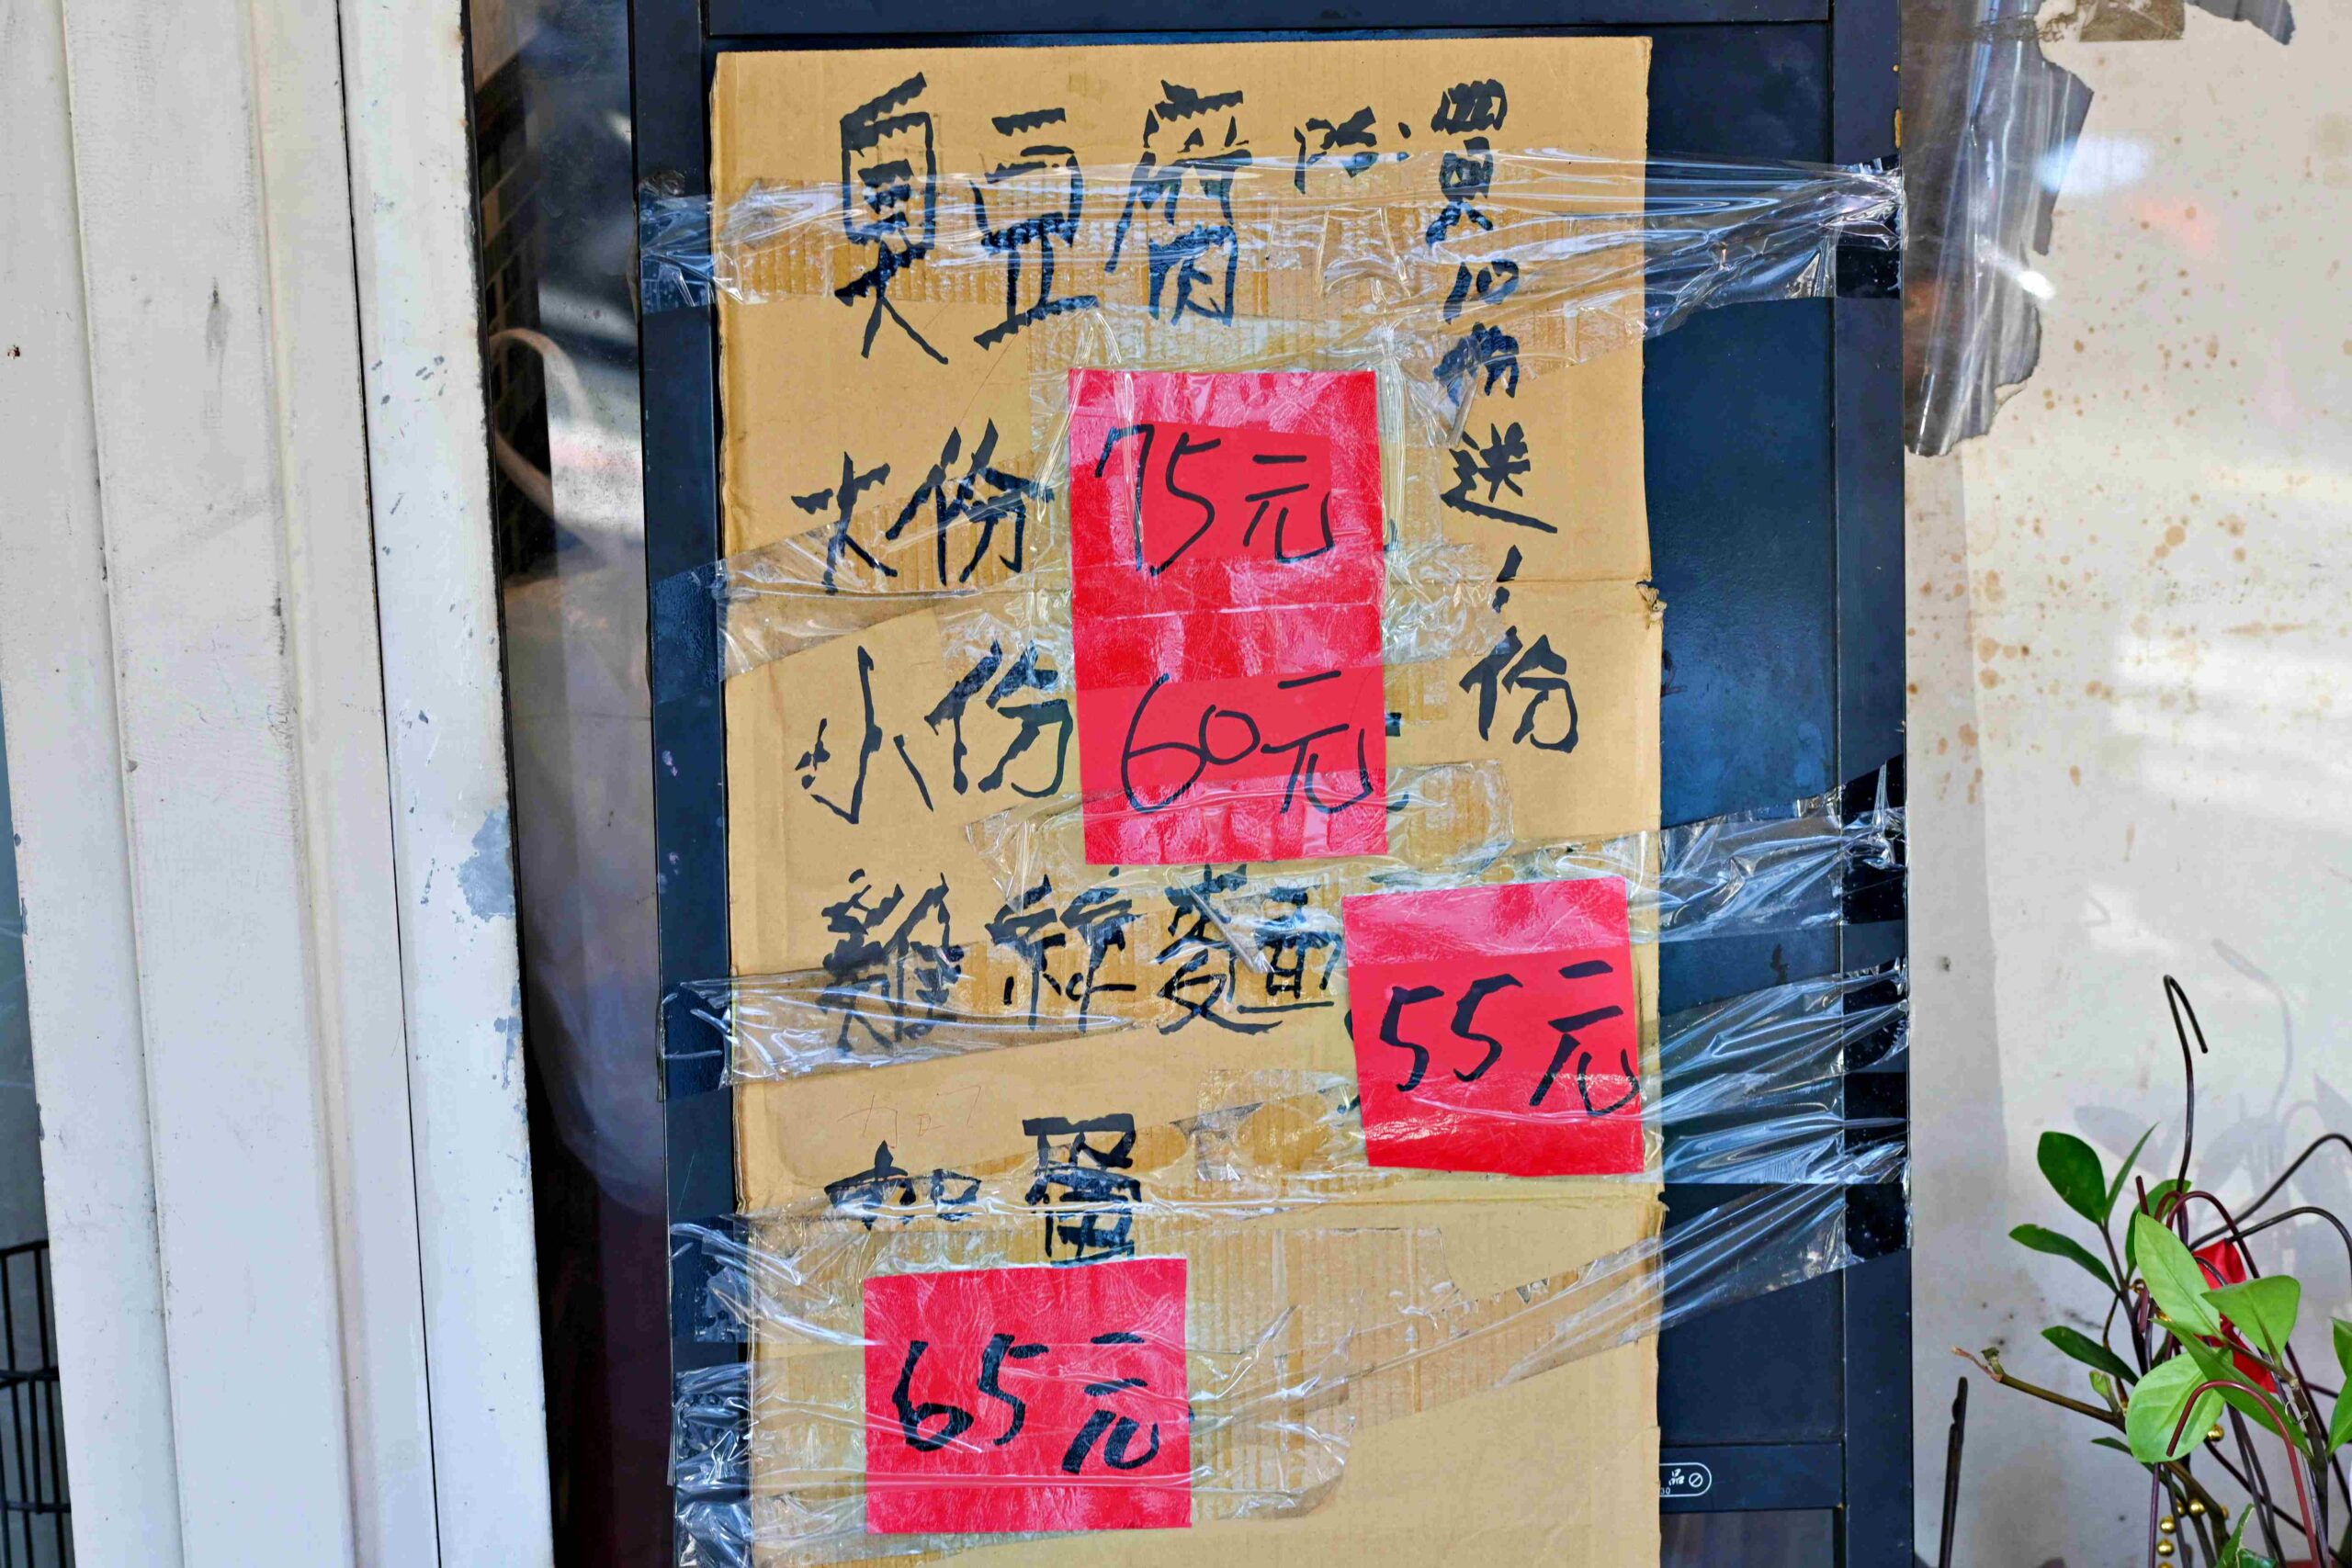 臭豆腐
大份 75元
小份 60元
買10份送1份
雞絲麵 55元
加蛋
65元